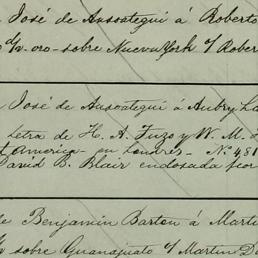 José de Ansoategui á Roberto
oro - sobre Nueva York
José de Ansoategui á Aubry
Letra de H. A. Tuzo y W. M.
America - en Londres - No. 481
David B. Blair endosada por
de Benjamin Barton á Marti
sobre Guanajuato